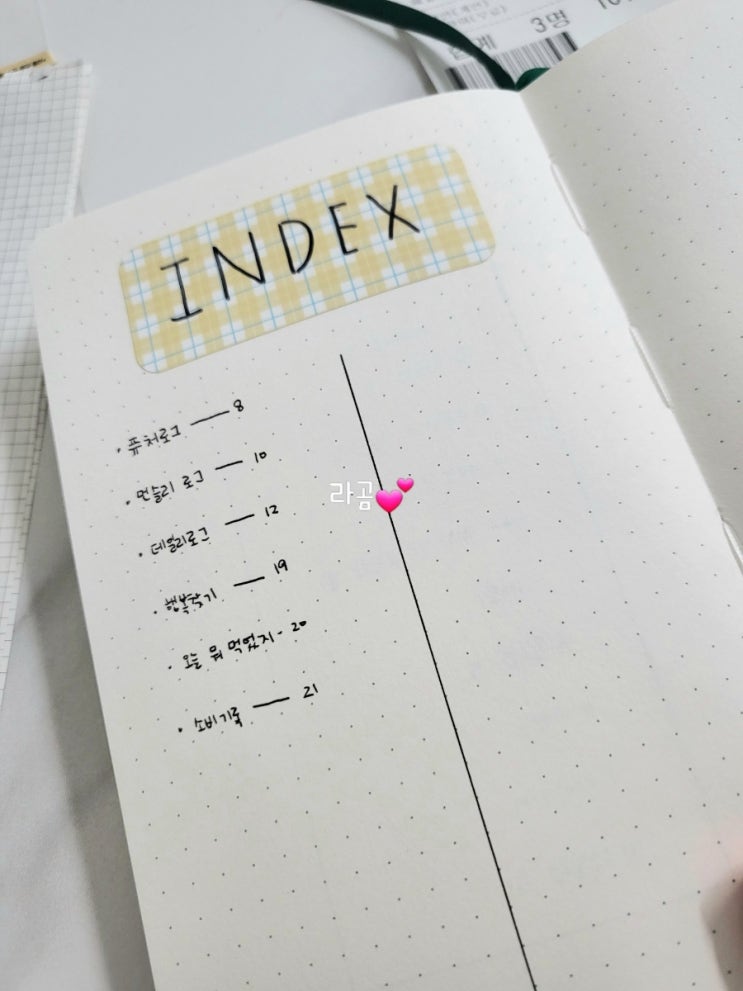 3명
INDEX
· 퓨처로그 — 8
· 먼슬리 로그 — 10
라곰💕
· 데일리로그 — 12
· 행복찾기 — 19
· 오늘 뭐 먹었지 - 20
· 소비기록 — 21